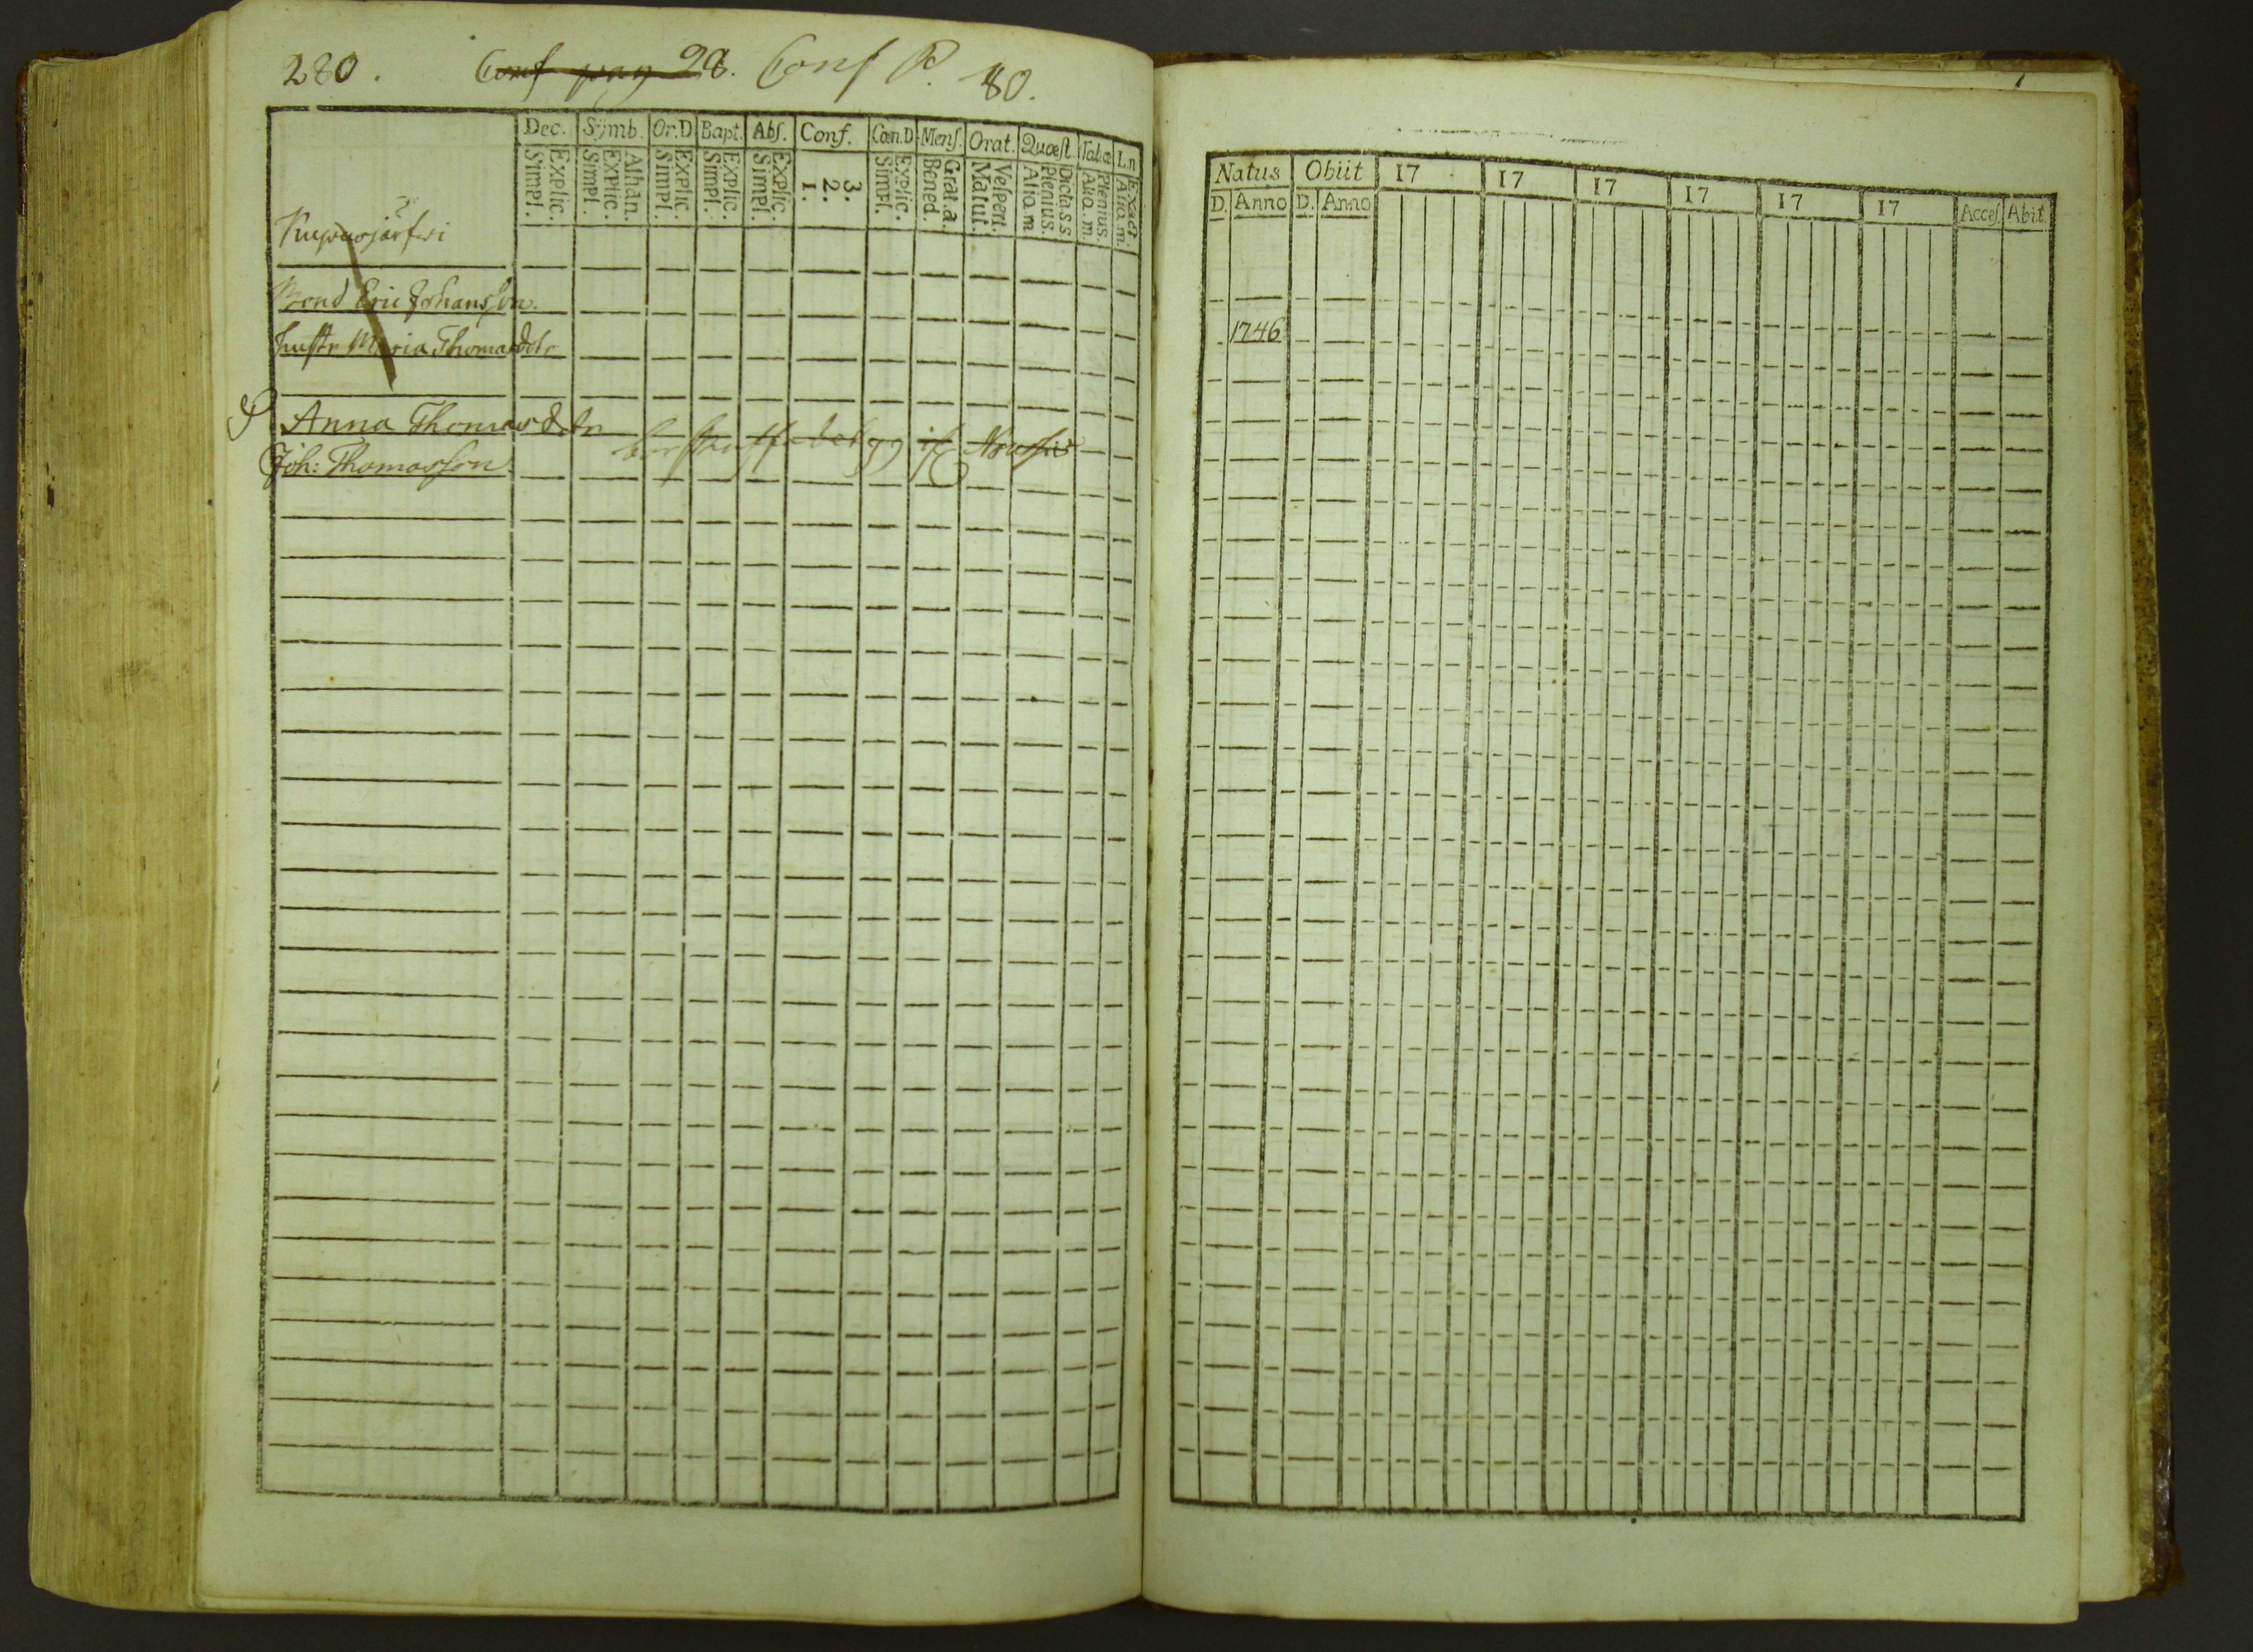 280. Conf pag 28. Conf P. 80.
Dec. Sÿmb. Or.D. Bapt. Abſ. Conf. Cœn.D. Menſ. Orat. Quæſt. Tabæ L.n
Simpl. Explic. Simpl. Explic. Athan. Simpl. Explic. Simpl. Explic. Simpl. Explic. 1. 2. 3. Simpl. Explic. Bened. Grat.a. Matut. Veſpert. Alia.m Plenius. Dicta.s.s Alia.m. Plenius. Alia.m. Exact.
Bond Eric Johansson.
Hustr Maria Thomasdotr
Anna Thomasdotr
Joh: Thomasson.
Natus Obiit 17 17 17 17 17 17 Acceſ. Abit.
D. Anno D. Anno
1746